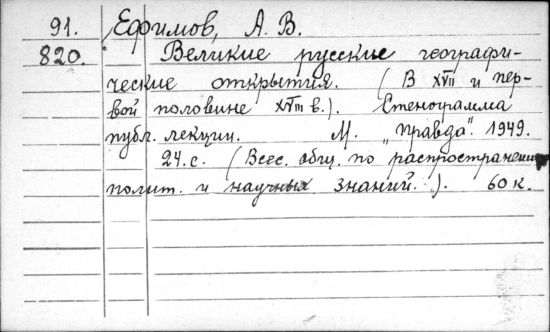 91. Ефимов, А. В.
820. Великие русские географи-
ческие открытия. (В XVII и пер-
вой половине XVIII в.). Стенограмма
публ. лекции. М. "Правда". 1949.
24. с. (Всес. общ. по распространению
полит. и научных знаний.). 60 к.